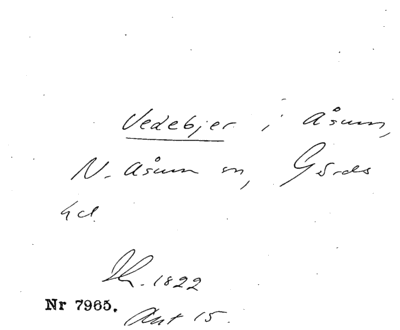 Vedebjer i Åsum,
N. Åsum sn, Gärds
hd.
1822
Nr 7965.
Ant 15.